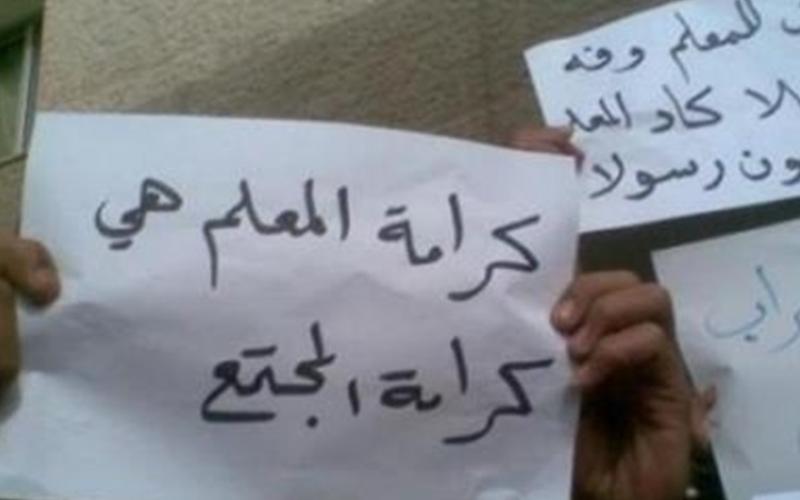 كرامة المعلم هي
كرامة المجتمع
للمعلم وفه
كاد المعلـ
ون رسولا